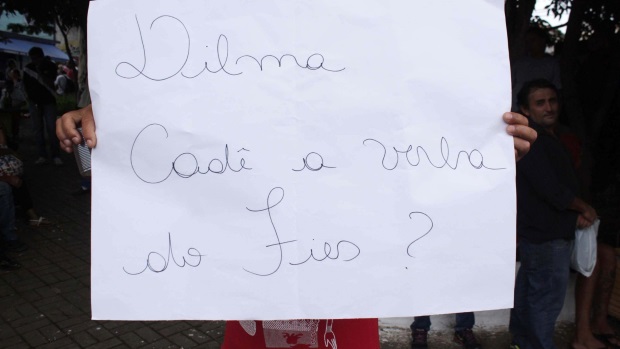 Dilma
Cadê a verba
do Fies ?